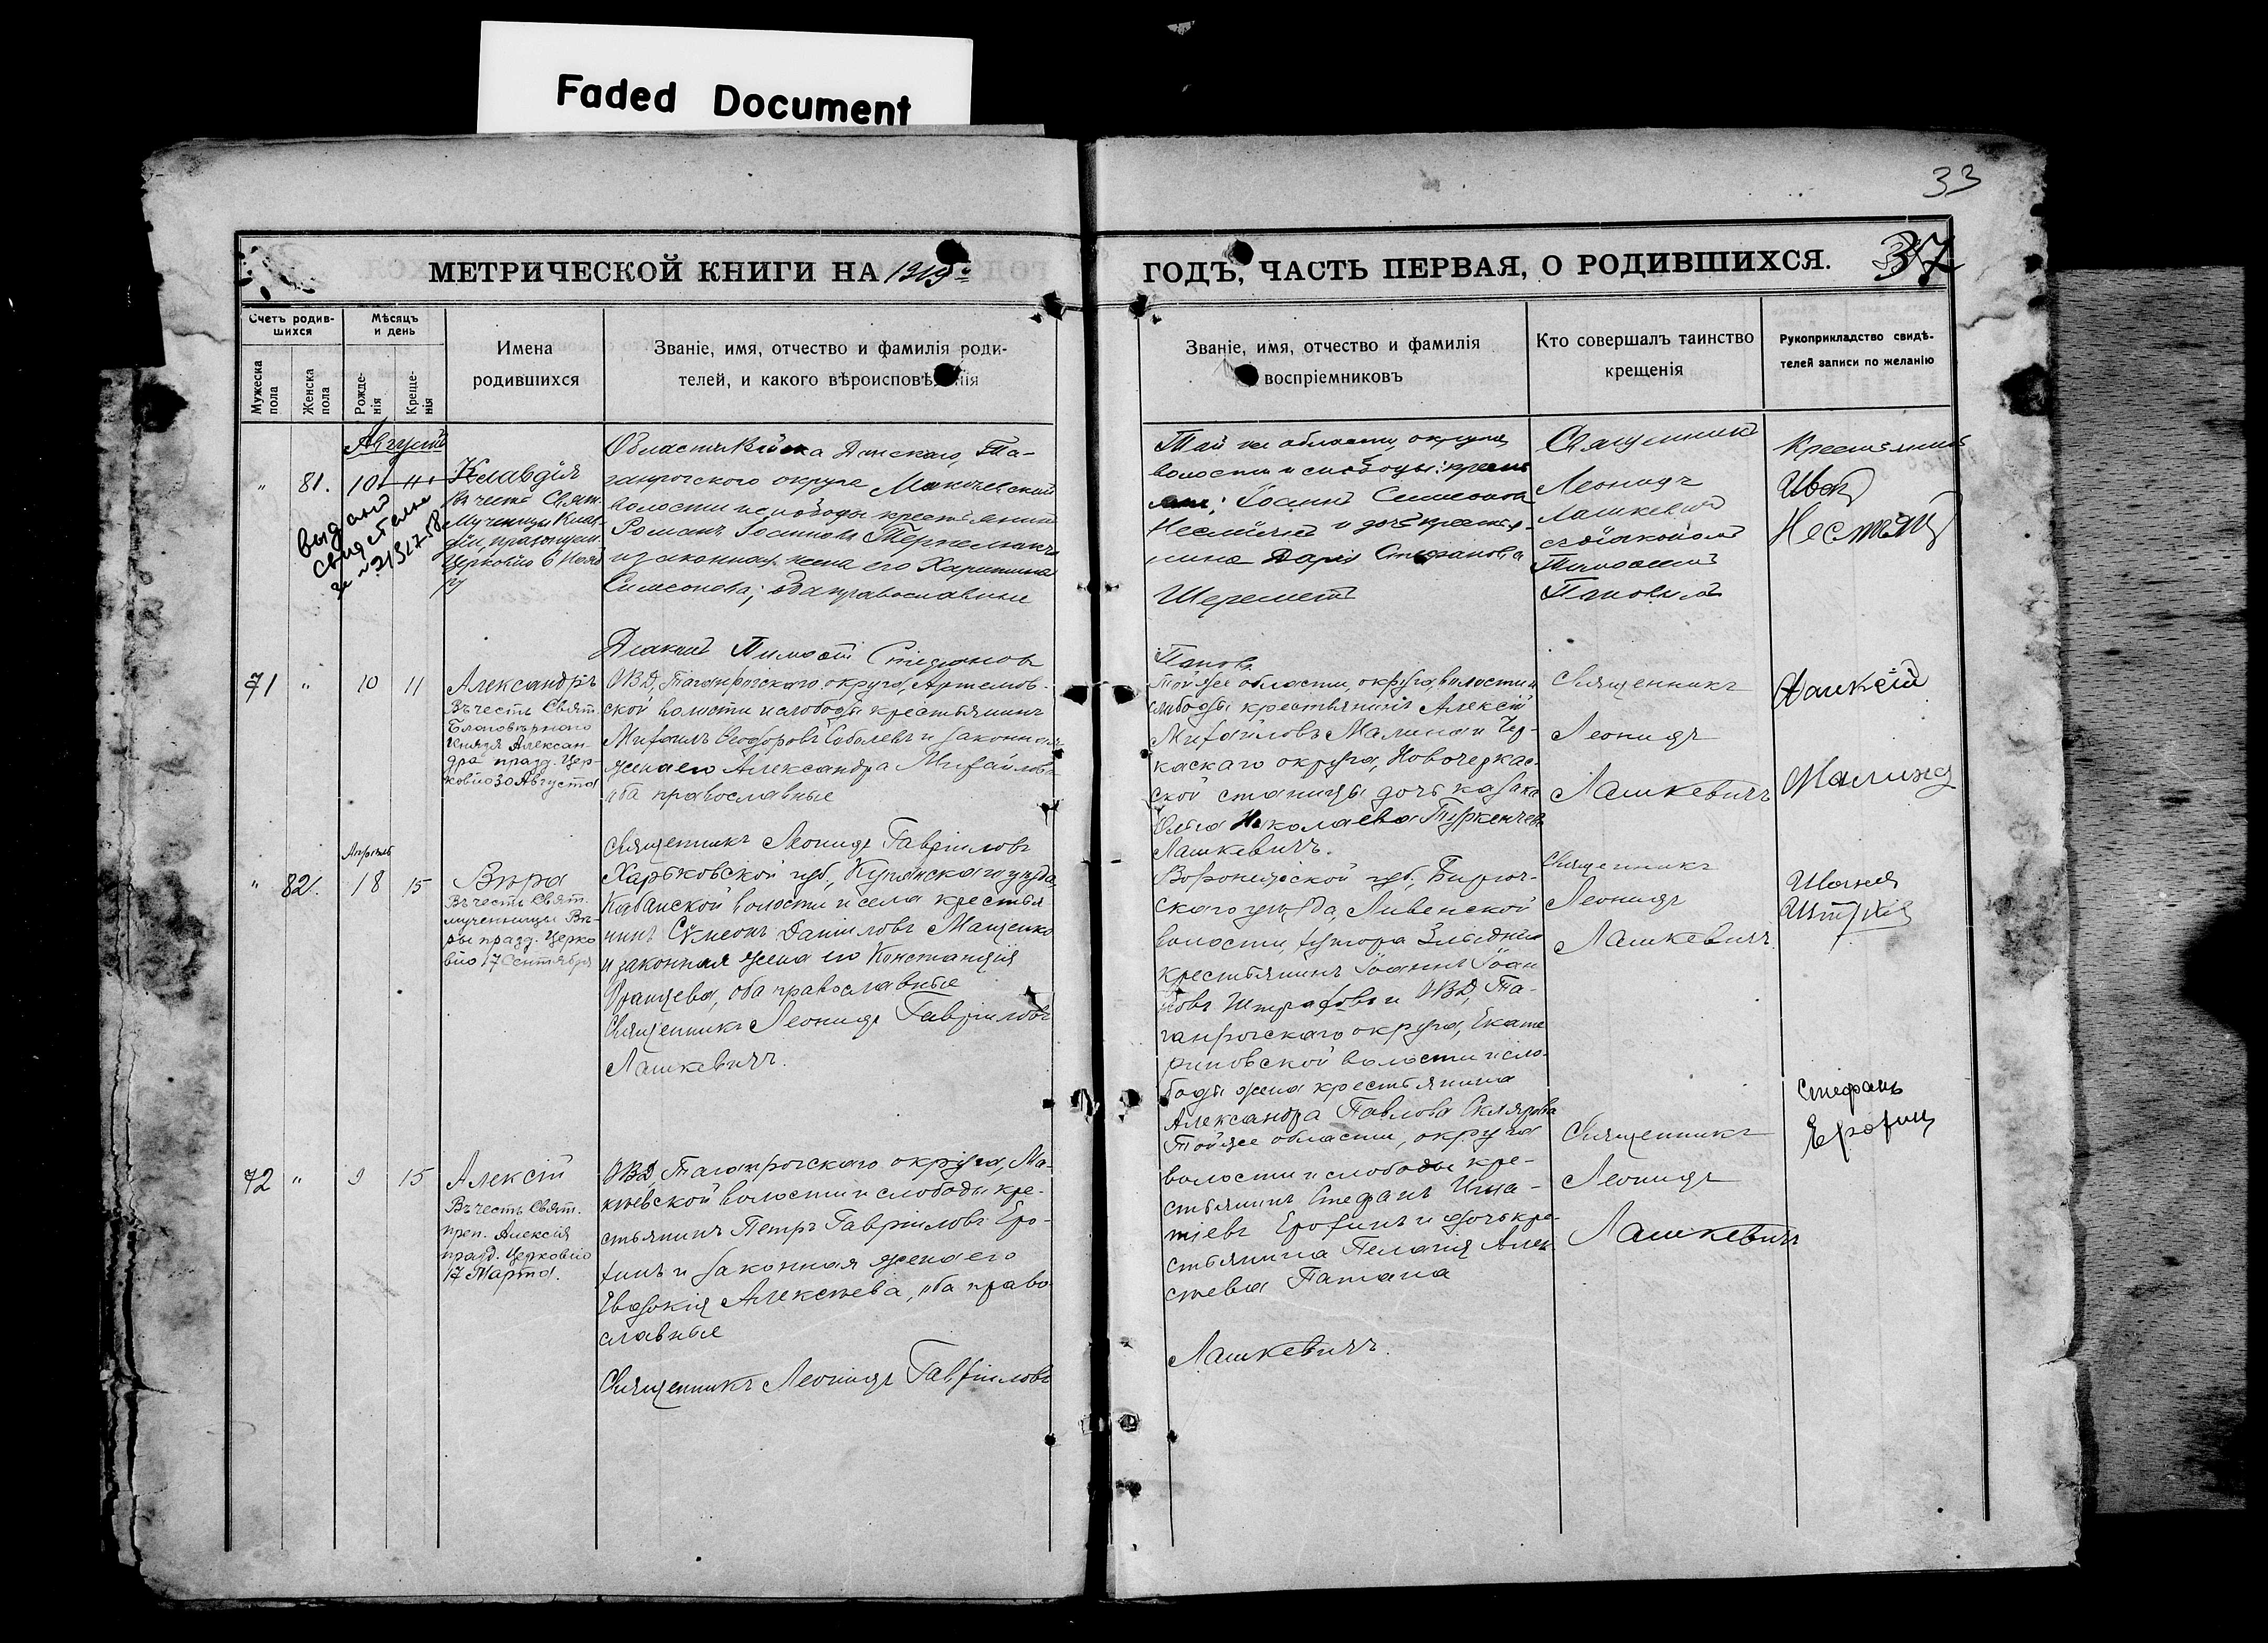 Faded Document
33
МЕТРИЧЕСКОЙ КНИГИ НА
ГОДЪ, ЧАСТЬ ПЕРВАЯ, О РОДИВШИХСЯ.
37
Счетъ родив-
шихся
Мужеска
пола
Женска
пола
Мѣсяцъ
и день
Рожде-
нія
Креще-
нія
Имена
родившихся
Званіе, имя, отчество и фамилія роди-
телей, и какого вѣроисповѣданія
Званіе, имя, отчество и фамилія
воспріемниковъ
Кто совершалъ таинство
крещенія
Рукоприкладство свидѣ-
телей записи по желанію
Августъ
" 81. 10 11
Клавдія
Въ честь Свят.
Мученицы Клав-
діи,
Церковію 6
Области Войска Донскаго, Та-
ганрогскаго округа Макеевской
волости и слободы крестьянинъ
Романъ Іоанновъ
и законная жена его Харитина
Симеонова; оба православные
Діаконъ Тимоѳей Стефановъ
Той же области, округа,
волости и слободы:
Іоаннъ Симеоновъ
и дочь крестья-
нина Дарія Стефанова
Шереметъ
Поповъ
Священникъ
Леонидъ
Лашкевичъ
съ діакономъ
Тимоѳеемъ
Поповымъ
Крестьянинъ
71 " 10 11
Александръ
Въ честь Свят.
Благовѣрнаго
Князя Алексан-
дра празд. Цер-
ковію 30 Августа
ОВД, Таганрогскаго округа, Артемов-
ской волости и слободы крестьянинъ
Михаилъ Ѳеодоровъ Соболевъ и законная
жена его Александра Михайлова
оба православные
Священникъ Леонидъ Гавріиловъ
Той же области, округа волости и
слободы крестьянинъ Алексій
Михайловъ Малина и Чер-
каскаго округа, Новочеркас-
ской станицы дочь казака
Ольга Николаева
Лашкевичъ.
Священникъ
Леонидъ
Лашкевичъ
Малина
Апрѣль
" 82. 18 15
Вѣра
Въ честь Свят.
мученницы Вѣ-
ры празд. Церко
вію 17 Сентября
Харьковской губ., Купянскаго уѣзда,
Кабанской волости и села крестья
нинъ Сѵмеонъ Даніиловъ Мащенко
и законная жена его Констанція
Францева, оба православные
Священникъ Леонидъ Гавріиловъ
Лашкевичъ.
Воронежской губ., Бирюч-
скаго уѣзда, Ливенской
волости, хутора
крестьянинъ Іоаннъ Іоан
новъ Штраховъ и ОВД, Та-
ганрогскаго округа, Екате
риновской волости и сло-
боды жена крестьянина
Александра Павлова Склярова
Священникъ
Леонидъ
Лашкевичъ.
72 " 9 15
Алексій
Въ честь Свят.
преп. Алексія
празд. Церковію
17 Марта.
ОВД, Таганрогскаго округа, Ма-
кѣевской волости и слободы кре-
стьянинъ Петръ Гавріиловъ Еро-
хинъ и законная жена его
Евдокія Алексѣева, оба право
славные
Священникъ Леонидъ Гавріиловъ
Той же области, округа
волости и слободы кре-
стьянинъ Стефанъ Игна-
тіевъ Ерохинъ и дочь кре-
стьянина Пелагія Алек-
сѣева Патана
Лашкевичъ.
Священникъ
Леонидъ
Лашкевичъ
Стефанъ
Ерохинъ